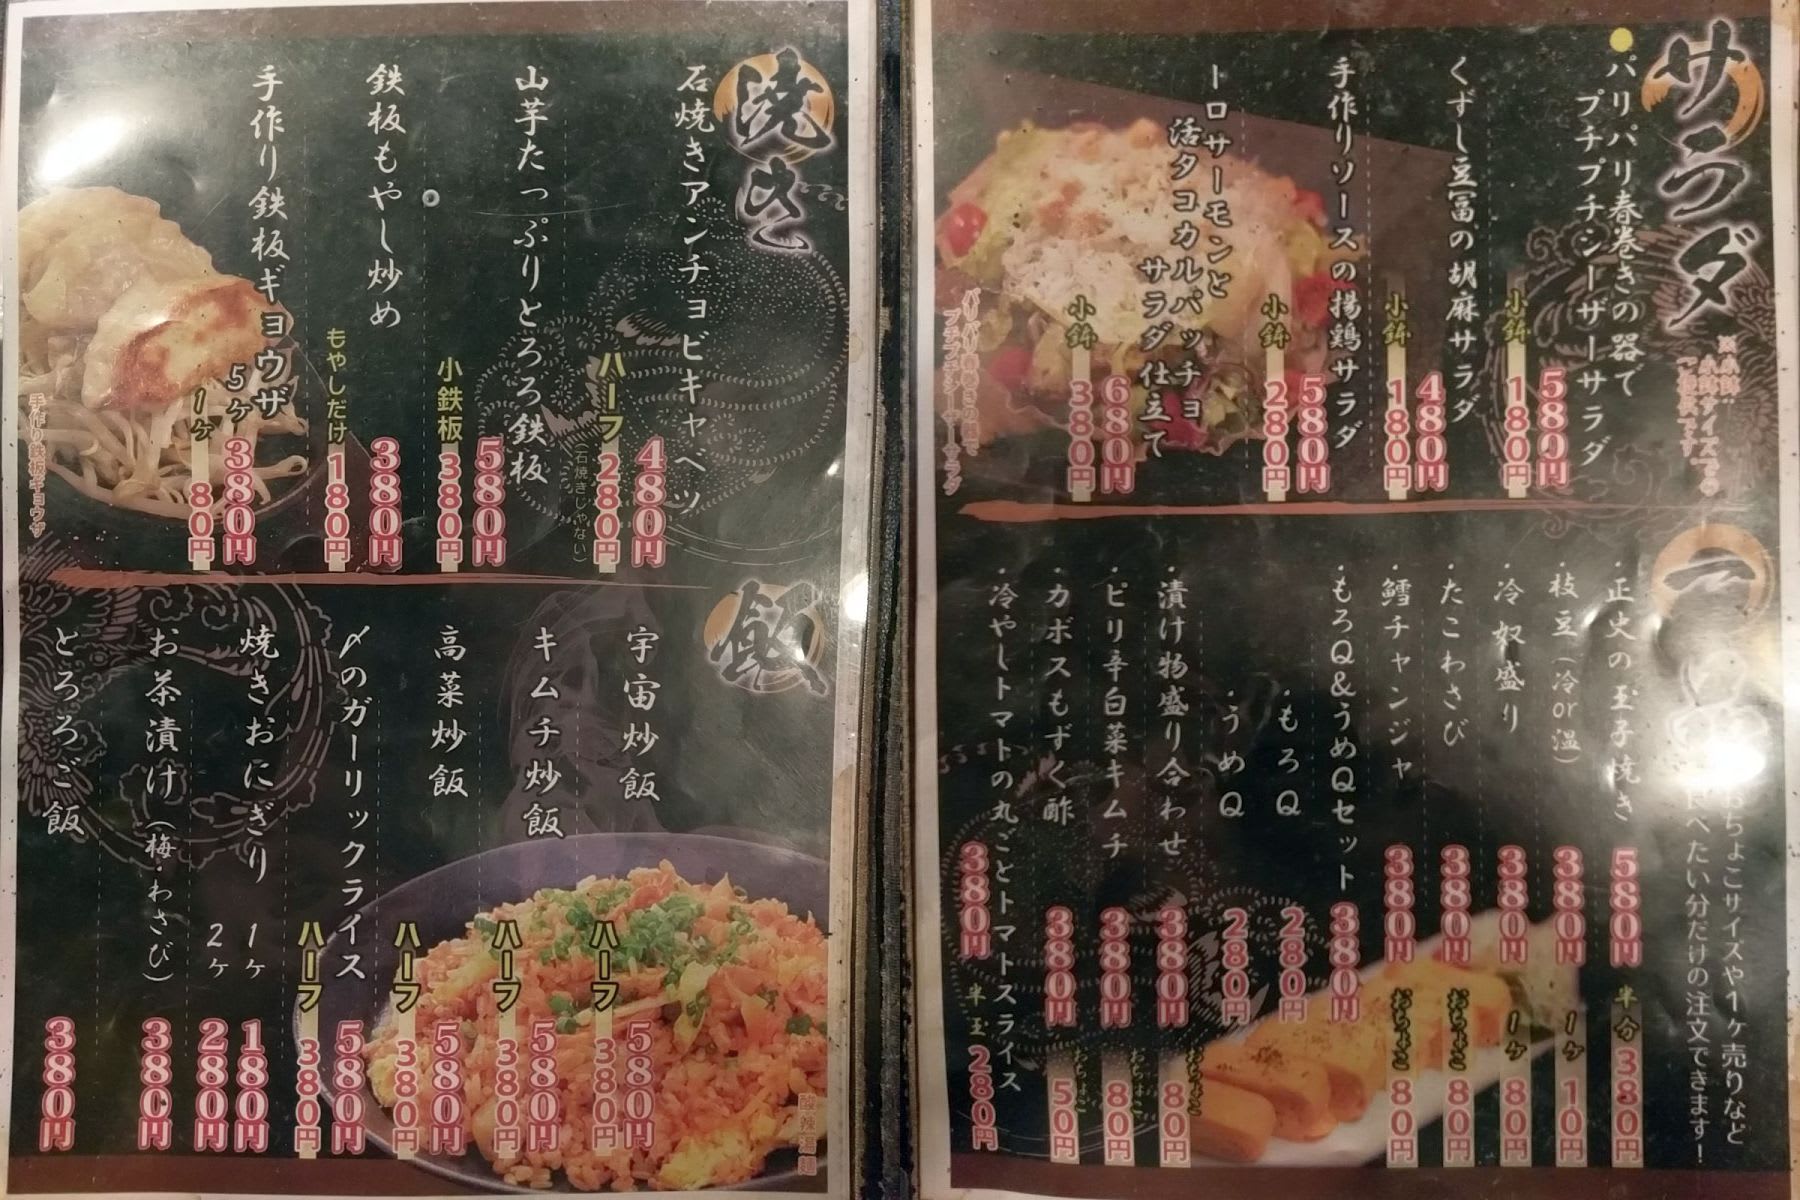 サラダ
※小鉢…
小鉢サイズでの
ご提供です
パリパリ春巻きの器で
プチプチシーザーサラダ
580円
小鉢 180円
くずし豆富の胡麻サラダ
480円
小鉢 180円
手作りソースの揚鶏サラダ
580円
小鉢 280円
トロサーモンと
活タコカルパッチョ
サラダ仕立て
680円
小鉢 380円
パリパリ春巻きの器で
プチプチシーザーサラダ
おちょこサイズや1ヶ売りなど
食べたい分だけの注文できます!
・正史の玉子焼き 580円
半分 380円
・枝豆(冷or温) 380円
1ヶ 10円
・冷奴盛り 380円
1ヶ 80円
・たこわさび 380円
おちょこ 80円
・鱈チャンジャ 380円
おちょこ 80円
・もろQ&うめQセット 380円
・もろQ 280円
・うめQ 280円
・漬け物盛り合わせ 380円
おちょこ 80円
・ピリ辛白菜キムチ 380円
おちょこ 80円
・カボスもずく酢 380円
おちょこ 50円
・冷やしトマトの丸ごとトマトスライス
380円
半玉 280円
焼き
石焼きアンチョビキャベツ
480円
ハーフ 280円
(石焼きじゃない)
山芋たっぷりとろろ鉄板
580円
小鉄板 380円
鉄板もやし炒め
380円
もやしだけ 180円
手作り鉄板ギョウザ
5ヶ 380円
1ヶ 80円
手作り鉄板ギョウザ
飯
宇宙炒飯
580円
ハーフ 380円
キムチ炒飯
580円
ハーフ 380円
高菜炒飯
580円
ハーフ 380円
〆のガーリックライス
580円
ハーフ 380円
焼きおにぎり 1ヶ 180円
2ヶ 280円
お茶漬け(梅・わさび) 380円
とろろご飯 380円
酸辣湯麺